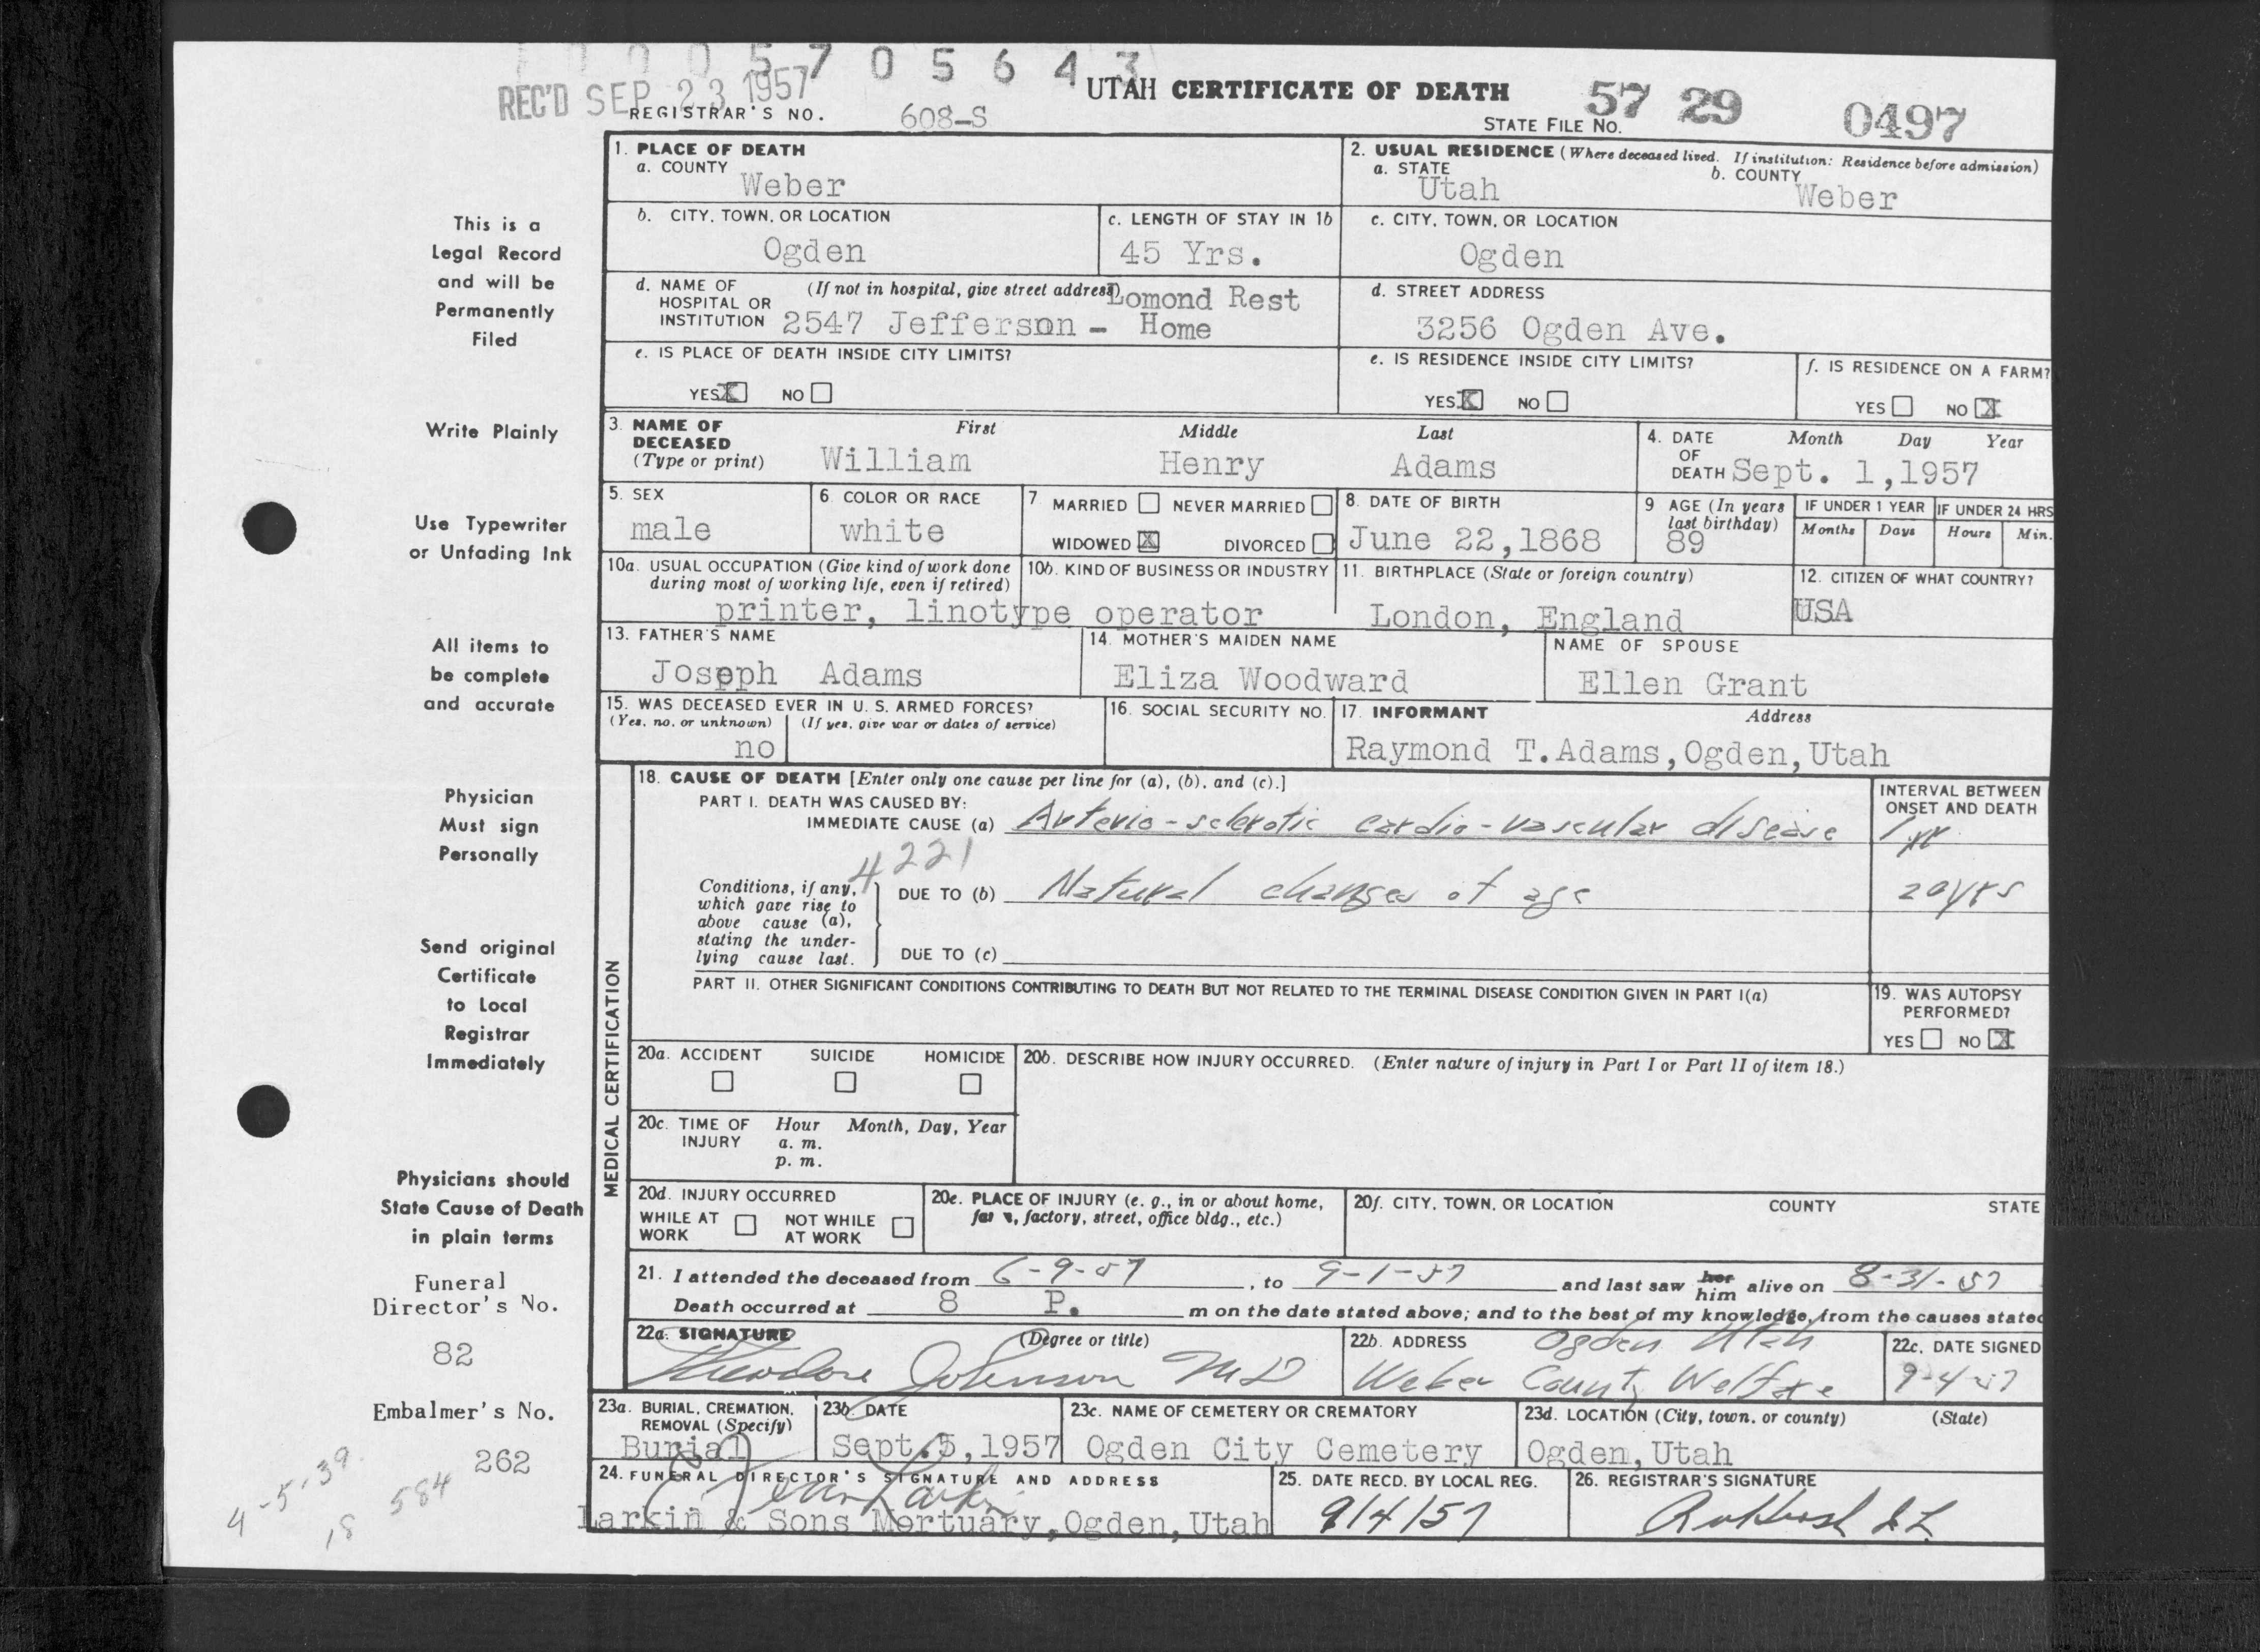 1 0 0 0 5 7 0 5 6 4 3
REC'D SEP 23 1957
UTAH CERTIFICATE OF DEATH
REGISTRAR'S NO. 608-S
STATE FILE NO. 57 29 0497
This is a
Legal Record
and will be
Permanently
Filed
Write Plainly
Use Typewriter
or Unfading Ink
All items to
be complete
and accurate
Physician
Must sign
Personally
Send original
Certificate
to Local
Registrar
Immediately
Physicians should
State Cause of Death
in plain terms
Funeral
Director's No.
82
Embalmer's No.
262
4-5-39
584
18
1. PLACE OF DEATH
a. COUNTY
Weber
2. USUAL RESIDENCE (Where deceased lived. If institution: Residence before admission)
a. STATE
Utah
b. COUNTY
Weber
b. CITY, TOWN, OR LOCATION
Ogden
c. LENGTH OF STAY IN 1b
45 Yrs.
c. CITY, TOWN, OR LOCATION
Ogden
d. NAME OF HOSPITAL OR INSTITUTION
(If not in hospital, give street address)
Lomond Rest
2547 Jefferson - Home
d. STREET ADDRESS
3256 Ogden Ave.
e. IS PLACE OF DEATH INSIDE CITY LIMITS?
YES X NO
e. IS RESIDENCE INSIDE CITY LIMITS?
YES X NO
f. IS RESIDENCE ON A FARM?
YES NO X
3. NAME OF DECEASED (Type or print)
First Middle Last
William Henry Adams
4. DATE OF DEATH
Month Day Year
Sept. 1,1957
5. SEX
male
6. COLOR OR RACE
white
7 MARRIED NEVER MARRIED
WIDOWED X DIVORCED
8. DATE OF BIRTH
June 22,1868
9 AGE (In years last birthday)
89
IF UNDER 1 YEAR
Months Days
IF UNDER 24 HRS
Hours Min.
10a. USUAL OCCUPATION (Give kind of work done
during most of working life, even if retired)
10b. KIND OF BUSINESS OR INDUSTRY
printer, linotype operator
11. BIRTHPLACE (State or foreign country)
London, England
12. CITIZEN OF WHAT COUNTRY?
USA
13. FATHER'S NAME
Joseph Adams
14. MOTHER'S MAIDEN NAME
Eliza Woodward
NAME OF SPOUSE
Ellen Grant
15. WAS DECEASED EVER IN U. S. ARMED FORCES?
(Yes, no, or unknown) (If yes, give war or dates of service)
no
16. SOCIAL SECURITY NO.
17. INFORMANT Address
Raymond T.Adams,Ogden,Utah
MEDICAL CERTIFICATION
18. CAUSE OF DEATH [Enter only one cause per line for (a), (b), and (c).]
INTERVAL BETWEEN
ONSET AND DEATH
PART I. DEATH WAS CAUSED BY:
IMMEDIATE CAUSE (a) Arterio-sclerotic cardio-vascular disease 1 yr
4221
Conditions, if any,
which gave rise to
above cause (a),
stating the under-
lying cause last.
DUE TO (b) Natural changes of age 20 yrs
DUE TO (c)
PART II. OTHER SIGNIFICANT CONDITIONS CONTRIBUTING TO DEATH BUT NOT RELATED TO THE TERMINAL DISEASE CONDITION GIVEN IN PART I(a)
19. WAS AUTOPSY
PERFORMED?
YES NO X
20a. ACCIDENT SUICIDE HOMICIDE
20b. DESCRIBE HOW INJURY OCCURRED. (Enter nature of injury in Part I or Part II of item 18.)
20c. TIME OF INJURY
Hour Month, Day, Year
a. m.
p. m.
20d. INJURY OCCURRED
WHILE AT WORK NOT WHILE AT WORK
20e. PLACE OF INJURY (e. g., in or about home,
farm, factory, street, office bldg., etc.)
20f. CITY, TOWN, OR LOCATION COUNTY STATE
21. I attended the deceased from 6-9-57, to 9-1-57 and last saw her him alive on 8-31-57
Death occurred at 8 P. m on the date stated above; and to the best of my knowledge, from the causes stated
22a. SIGNATURE (Degree or title)
Theodore Johnson MD
22b. ADDRESS
Ogden Utah
Weber County Welfare
22c. DATE SIGNED
9-4-57
23a. BURIAL, CREMATION,
REMOVAL (Specify)
Burial
23b. DATE
Sept.5,1957
23c. NAME OF CEMETERY OR CREMATORY
Ogden City Cemetery
23d. LOCATION (City, town, or county) (State)
Ogden,Utah
24. FUNERAL DIRECTOR'S SIGNATURE AND ADDRESS
Larkin
Larkin & Sons Mortuary,Ogden,Utah
25. DATE RECD. BY LOCAL REG.
9/4/57
26. REGISTRAR'S SIGNATURE